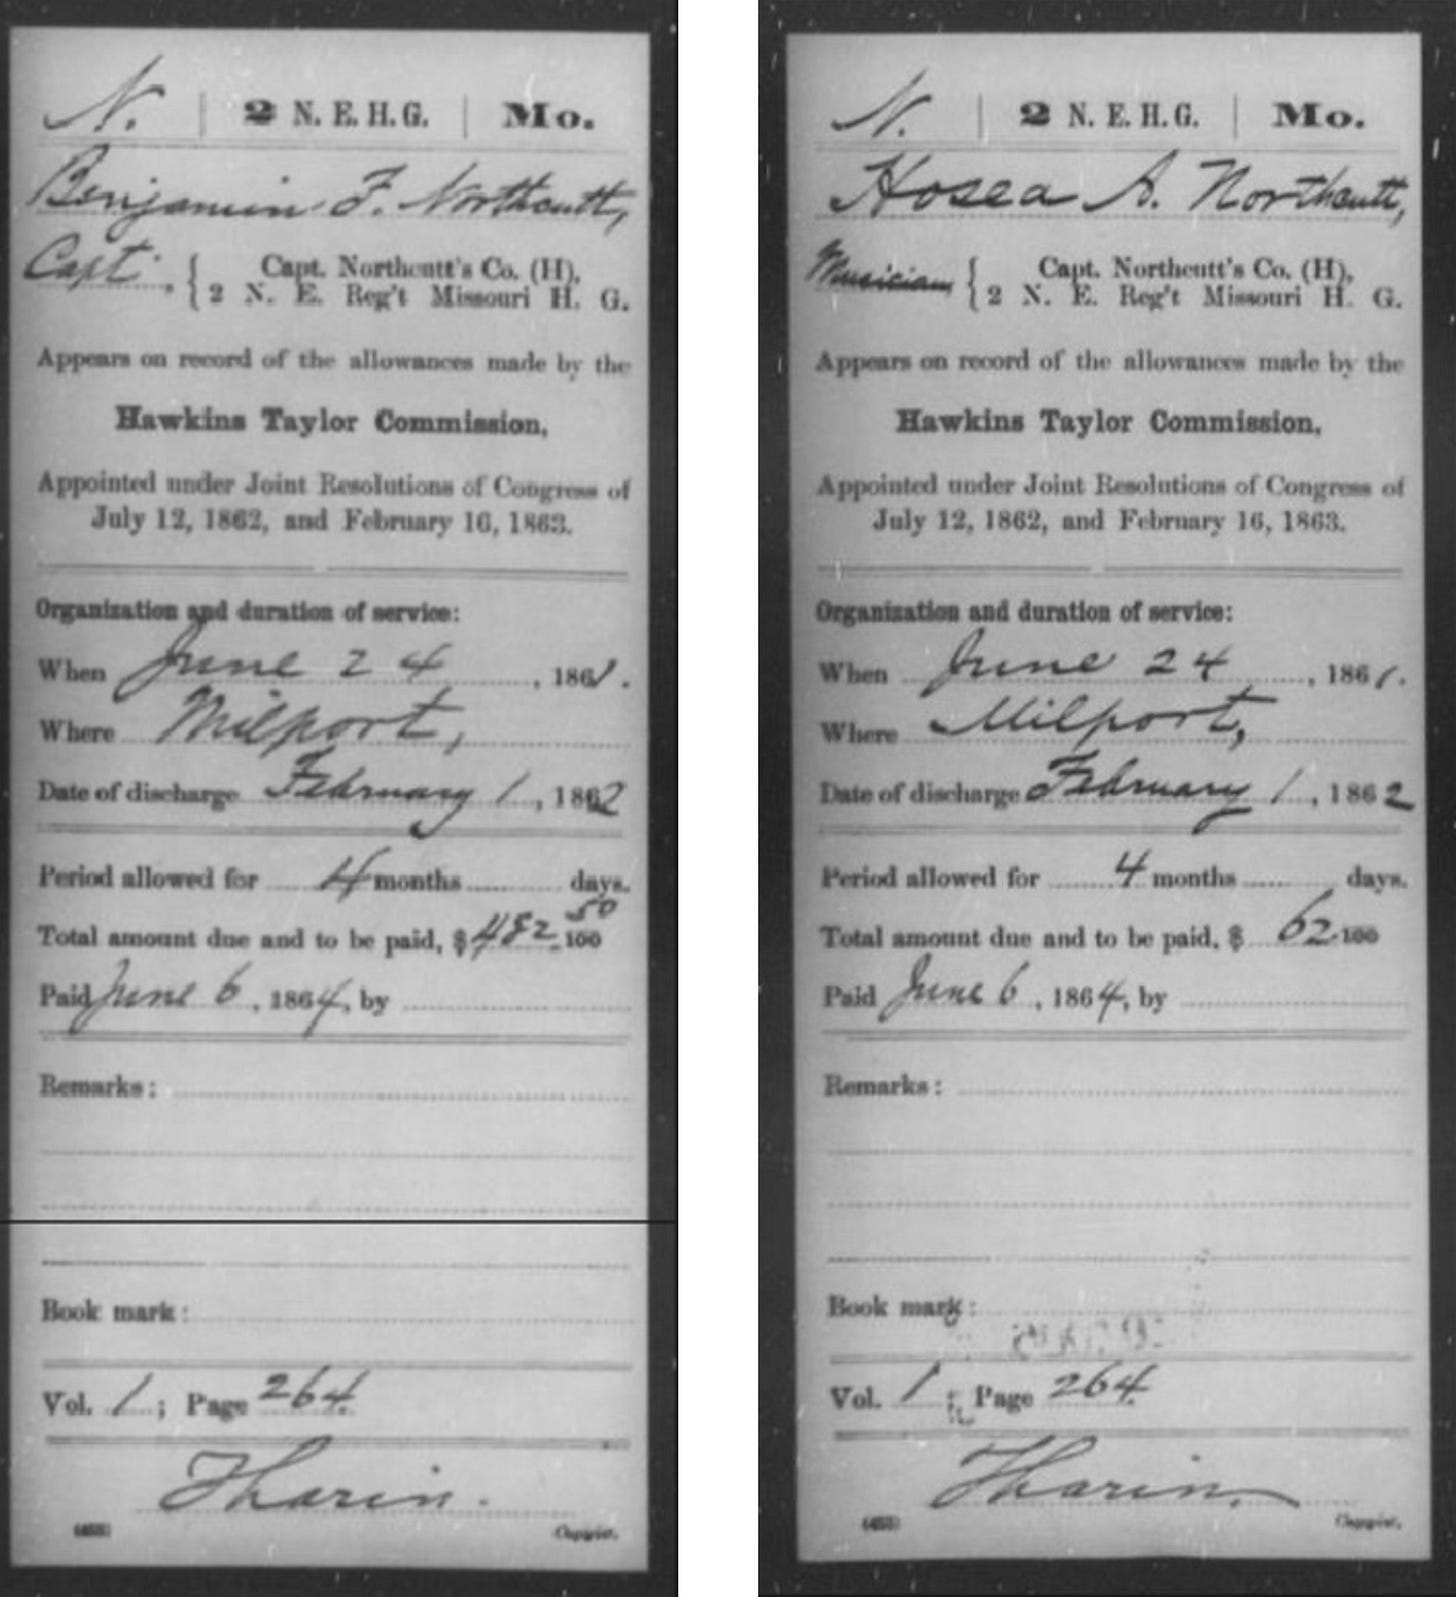 N. | 2 N. E. H. G. | Mo.
Benjamin F. Northcutt,
Capt., { Capt. Northcutt's Co. (H),
2 N. E. Reg't Missouri H. G.
Appears on record of the allowances made by the
Hawkins Taylor Commission,
Appointed under Joint Resolutions of Congress of
July 12, 1862, and February 16, 1863.
Organization and duration of service:
When June 24, 1861.
Where Milport,
Date of discharge February 1, 1862
Period allowed for 4 months days.
Total amount due and to be paid, $482 50/100
Paid June 6, 1864, by
Remarks:
Book mark:
Vol. 1; Page 264.
Tharin.
(455) Copyist.
N. | 2 N. E. H. G. | Mo.
Hosea A. Northcutt,
Musician { Capt. Northcutt's Co. (H),
2 N. E. Reg't Missouri H. G.
Appears on record of the allowances made by the
Hawkins Taylor Commission,
Appointed under Joint Resolutions of Congress of
July 12, 1862, and February 16, 1863.
Organization and duration of service:
When June 24, 1861.
Where Milport,
Date of discharge February 1, 1862
Period allowed for 4 months days.
Total amount due and to be paid, $ 62 100
Paid June 6, 1864, by
Remarks:
Book mark:
Vol. 1; Page 264.
Tharin.
(455) Copyist.